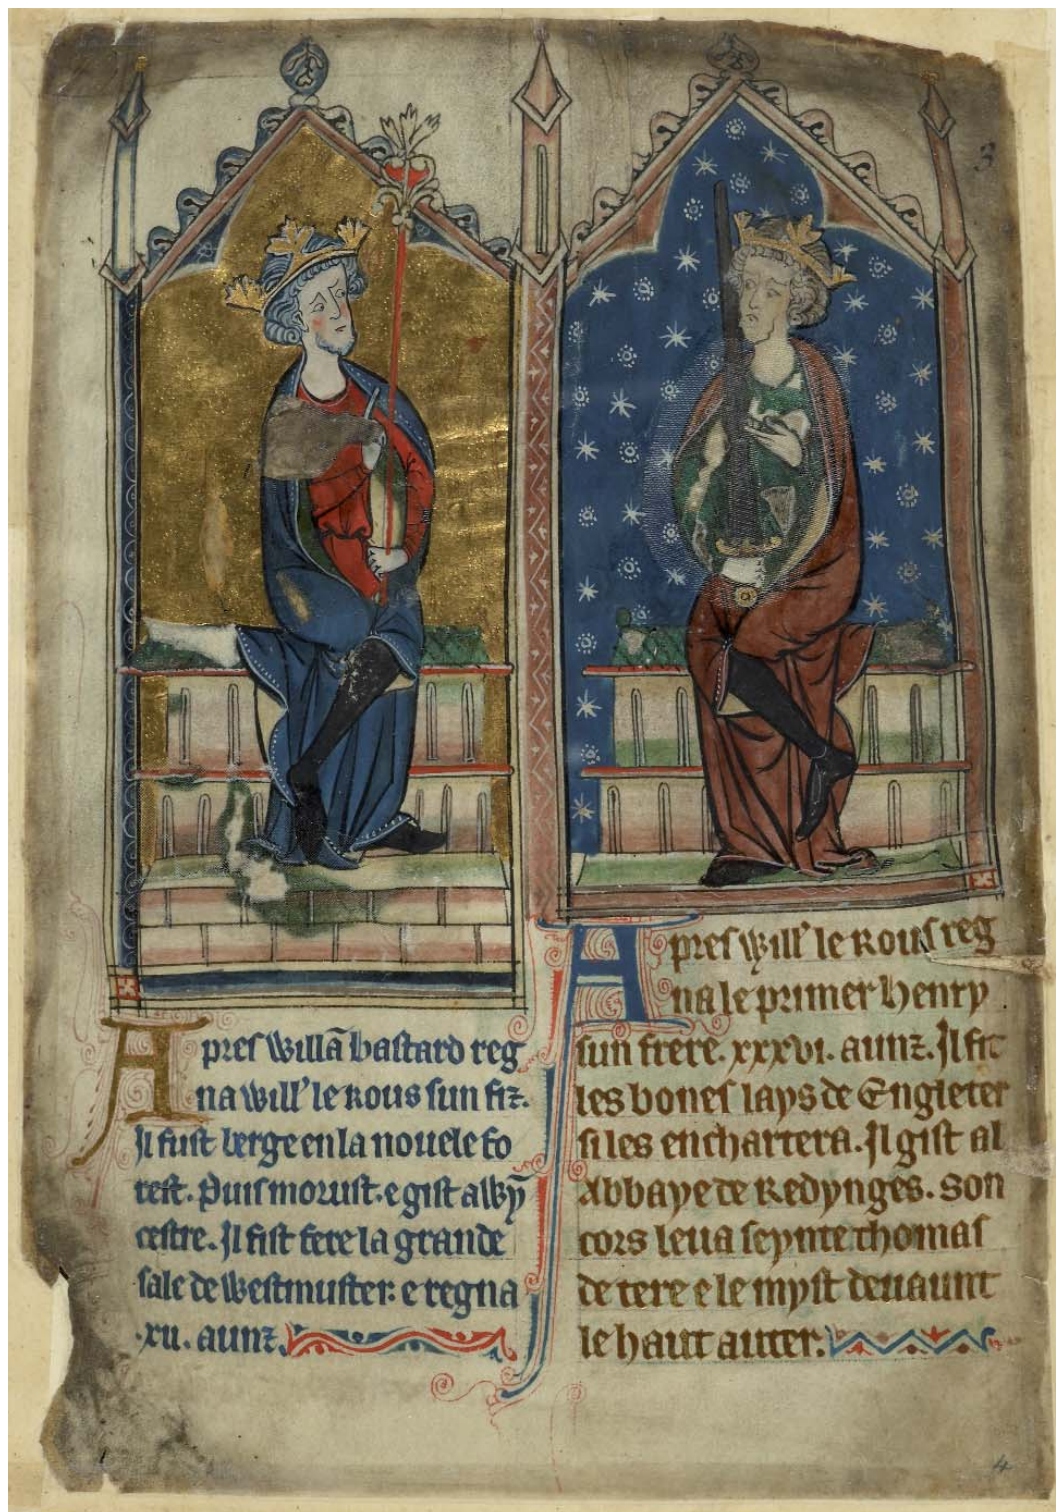 3
Apres Willā bastard reg
na will' le Rous sun fiz.
Il fust berge en la nouele fo
rest. Puis morust. e gist a Wȳ
cestre. Il fist fere la grande
sale de Westmuster: e regna
.xii. aunz.
Apres Will' le Rous reg
na le primer Henry
sun frere. xxxvi. aunz. Il fit
les bones lays de Engleter
si les enchartera. Il gist al
Abbaye de Redynges. Son
cors leua seynte thomas
de tere e le myst deuaunt
le haut auter.
4